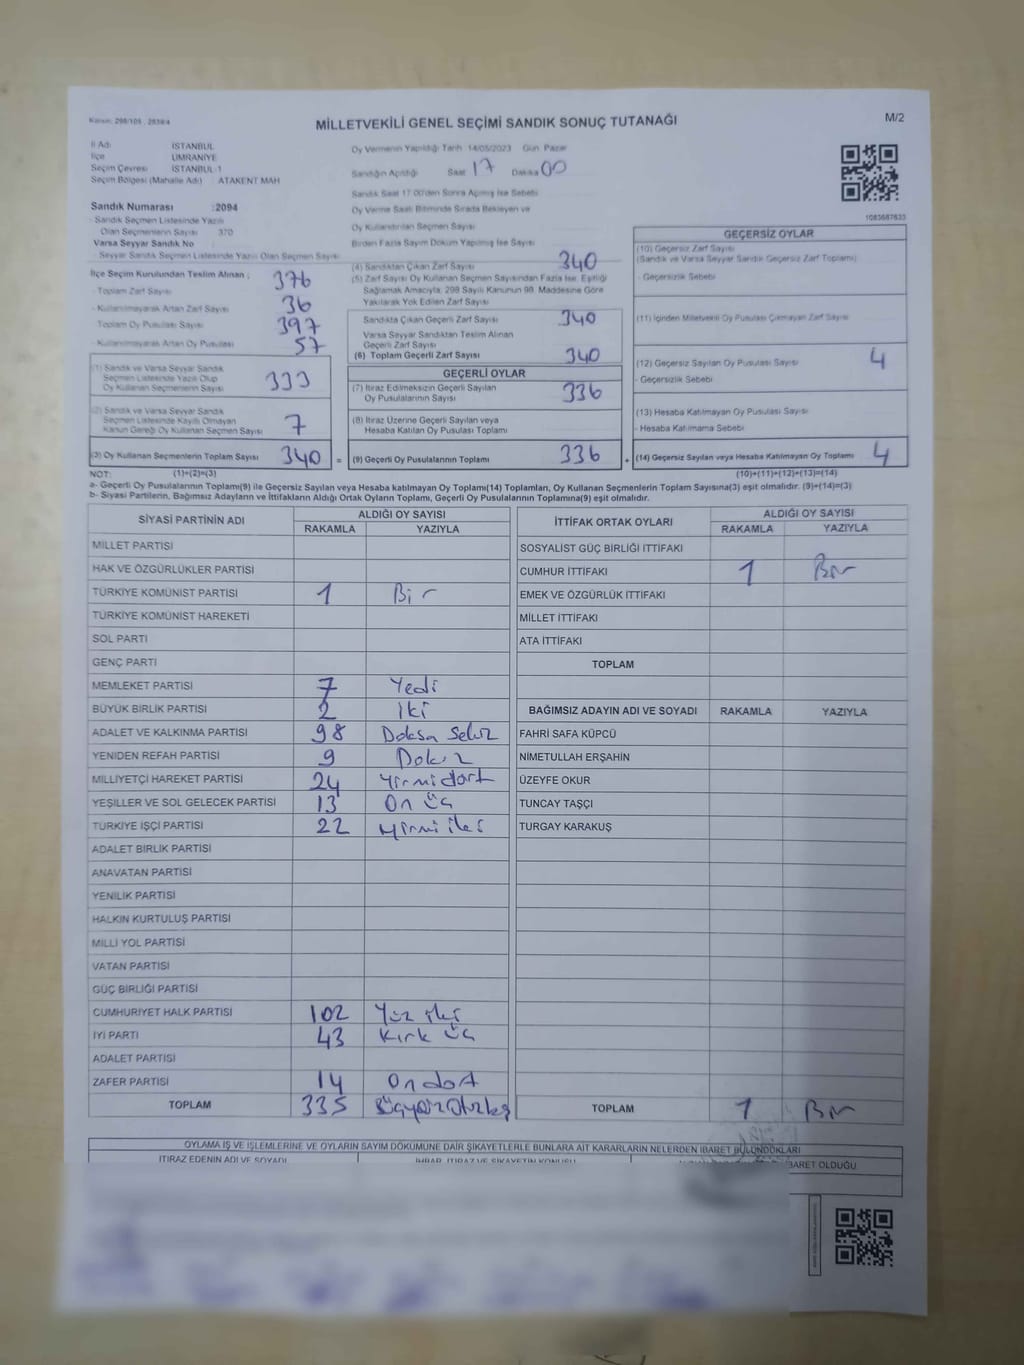 Kanun: 298/105 - 2839/4
MİLLETVEKİLİ GENEL SEÇİMİ SANDIK SONUÇ TUTANAĞI
M/2
İl Adı İSTANBUL
İlçe ÜMRANİYE
Seçim Çevresi İSTANBUL-1
Seçim Bölgesi (Mahalle Adı) ATAKENT MAH
Sandık Numarası : 2094
- Sandık Seçmen Listesinde Yazılı
Olan Seçmenlerin Sayısı 370
Varsa Seyyar Sandık No
Seyyar Sandık Seçmen Listesinde Yazılı Olan Seçmen Sayısı
İlçe Seçim Kurulundan Teslim Alınan ;
- Toplam Zarf Sayısı 376
- Kullanılmayarak Artan Zarf Sayısı 36
Toplam Oy Pusulası Sayısı 397
- Kullanılmayarak Artan Oy Pusulası 57
(1) Sandık ve Varsa Seyyar Sandık
Seçmen Listesinde Yazılı Olup
Oy Kullanan Seçmenlerin Sayısı 333
(2) Sandık ve Varsa Seyyar Sandık
Seçmen Listesinde Kayıtlı Olmayan
Kanun Gereği Oy Kullanan Seçmen Sayısı 7
(3) Oy Kullanan Seçmenlerin Toplam Sayısı 340 =
Oy Vermenin Yapıldığı Tarih 14/05/2023 Gün Pazar
Sandığın Açıldığı Saat 17 Dakika 00
Sandık Saat 17.00'den Sonra Açılmış İse Sebebi
Oy Verme Saati Bitiminde Sırada Bekleyen ve
Oy Kullandırılan Seçmen Sayısı
Birden Fazla Sayım Döküm Yapılmış İse Sayısı
(4) Sandıktan Çıkan Zarf Sayısı 340
(5) Zarf Sayısı Oy Kullanan Seçmen Sayısından Fazla İse, Eşitliği
Sağlamak Amacıyla, 298 Sayılı Kanunun 98. Maddesine Göre
Yakılarak Yok Edilen Zarf Sayısı
Sandıkta Çıkan Geçerli Zarf Sayısı 340
Varsa Seyyar Sandıktan Teslim Alınan
Geçerli Zarf Sayısı
(6) Toplam Geçerli Zarf Sayısı 340
GEÇERLİ OYLAR
(7) İtiraz Edilmeksizin Geçerli Sayılan
Oy Pusulalarının Sayısı 336
(8) İtiraz Üzerine Geçerli Sayılan veya
Hesaba Katılan Oy Pusulası Toplamı
(9) Geçerli Oy Pusulalarının Toplamı 336 +
1083687633
GEÇERSİZ OYLAR
(10) Geçersiz Zarf Sayısı
(Sandık ve Varsa Seyyar Sandık Geçersiz Zarf Toplamı)
- Geçersizlik Sebebi
(11) İçinden Milletvekili Oy Pusulası Çıkmayan Zarf Sayısı
(12) Geçersiz Sayılan Oy Pusulası Sayısı 4
- Geçersizlik Sebebi
(13) Hesaba Katılmayan Oy Pusulası Sayısı
- Hesaba Katılmama Sebebi
(14) Geçersiz Sayılan veya Hesaba Katılmayan Oy Toplamı 4
NOT: (1)+(2)=(3) (10)+(11)+(12)+(13)=(14)
a- Geçerli Oy Pusulalarının Toplamı(9) ile Geçersiz Sayılan veya Hesaba katılmayan Oy Toplamı(14) Toplamları, Oy Kullanan Seçmenlerin Toplam Sayısına(3) eşit olmalıdır. (9)+(14)=(3)
b- Siyasi Partilerin, Bağımsız Adayların ve İttifakların Aldığı Ortak Oyların Toplamı, Geçerli Oy Pusulalarının Toplamına(9) eşit olmalıdır.
SİYASİ PARTİNİN ADI ALDIĞI OY SAYISI
RAKAMLA YAZIYLA
MİLLET PARTİSİ
HAK VE ÖZGÜRLÜKLER PARTİSİ
TÜRKİYE KOMÜNİST PARTİSİ 1 Bir
TÜRKİYE KOMÜNİST HAREKETİ
SOL PARTİ
GENÇ PARTİ
MEMLEKET PARTİSİ 7 Yedi
BÜYÜK BİRLİK PARTİSİ 2 İki
ADALET VE KALKINMA PARTİSİ 98 Doksa Sekiz
YENİDEN REFAH PARTİSİ 9 Dokuz
MİLLİYETÇİ HAREKET PARTİSİ 24 Yirmidört
YEŞİLLER VE SOL GELECEK PARTİSİ 13 On üç
TÜRKİYE İŞÇİ PARTİSİ 22 Yirmi iki
ADALET BİRLİK PARTİSİ
ANAVATAN PARTİSİ
YENİLİK PARTİSİ
HALKIN KURTULUŞ PARTİSİ
MİLLİ YOL PARTİSİ
VATAN PARTİSİ
GÜÇ BİRLİĞİ PARTİSİ
CUMHURİYET HALK PARTİSİ 102 Yüz iki
İYİ PARTİ 43 Kırk üç
ADALET PARTİSİ
ZAFER PARTİSİ 14 Ondört
TOPLAM 335 Üçyüzotuzbeş
İTTİFAK ORTAK OYLARI ALDIĞI OY SAYISI
RAKAMLA YAZIYLA
SOSYALİST GÜÇ BİRLİĞİ İTTİFAKI
CUMHUR İTTİFAKI 1 Bir
EMEK VE ÖZGÜRLÜK İTTİFAKI
MİLLET İTTİFAKI
ATA İTTİFAKI
TOPLAM
BAĞIMSIZ ADAYIN ADI VE SOYADI RAKAMLA YAZIYLA
FAHRİ SAFA KÜPCÜ
NİMETULLAH ERŞAHİN
ÜZEYFE OKUR
TUNCAY TAŞÇI
TURGAY KARAKUŞ
TOPLAM 1 Bir
OYLAMA İŞ VE İŞLEMLERİNE VE OYLARIN SAYIM DÖKÜMÜNE DAİR ŞİKAYETLERLE BUNLARA AİT KARARLARIN NELERDEN İBARET BULUNDUKLARI
İTİRAZ EDENİN ADI VE SOYADI İHBAR, İTİRAZ VE ŞİKAYETİN KONUSU BARET OLDUĞU